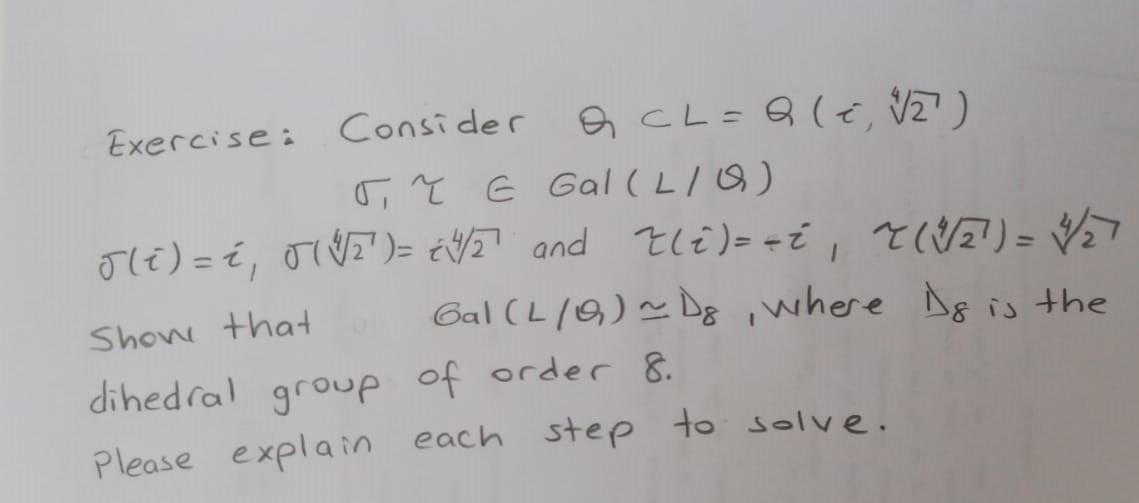 Exercise: Consider Q ⊂ L = Q(i, ∜2)
σ, τ ∈ Gal(L/Q)
σ(i) = i, σ(∜2) = i∜2 and τ(i) = -i, τ(∜2) = ∜2
Show that Gal(L/Q) ≃ D₈, where D₈ is the
dihedral group of order 8.
Please explain each step to solve.